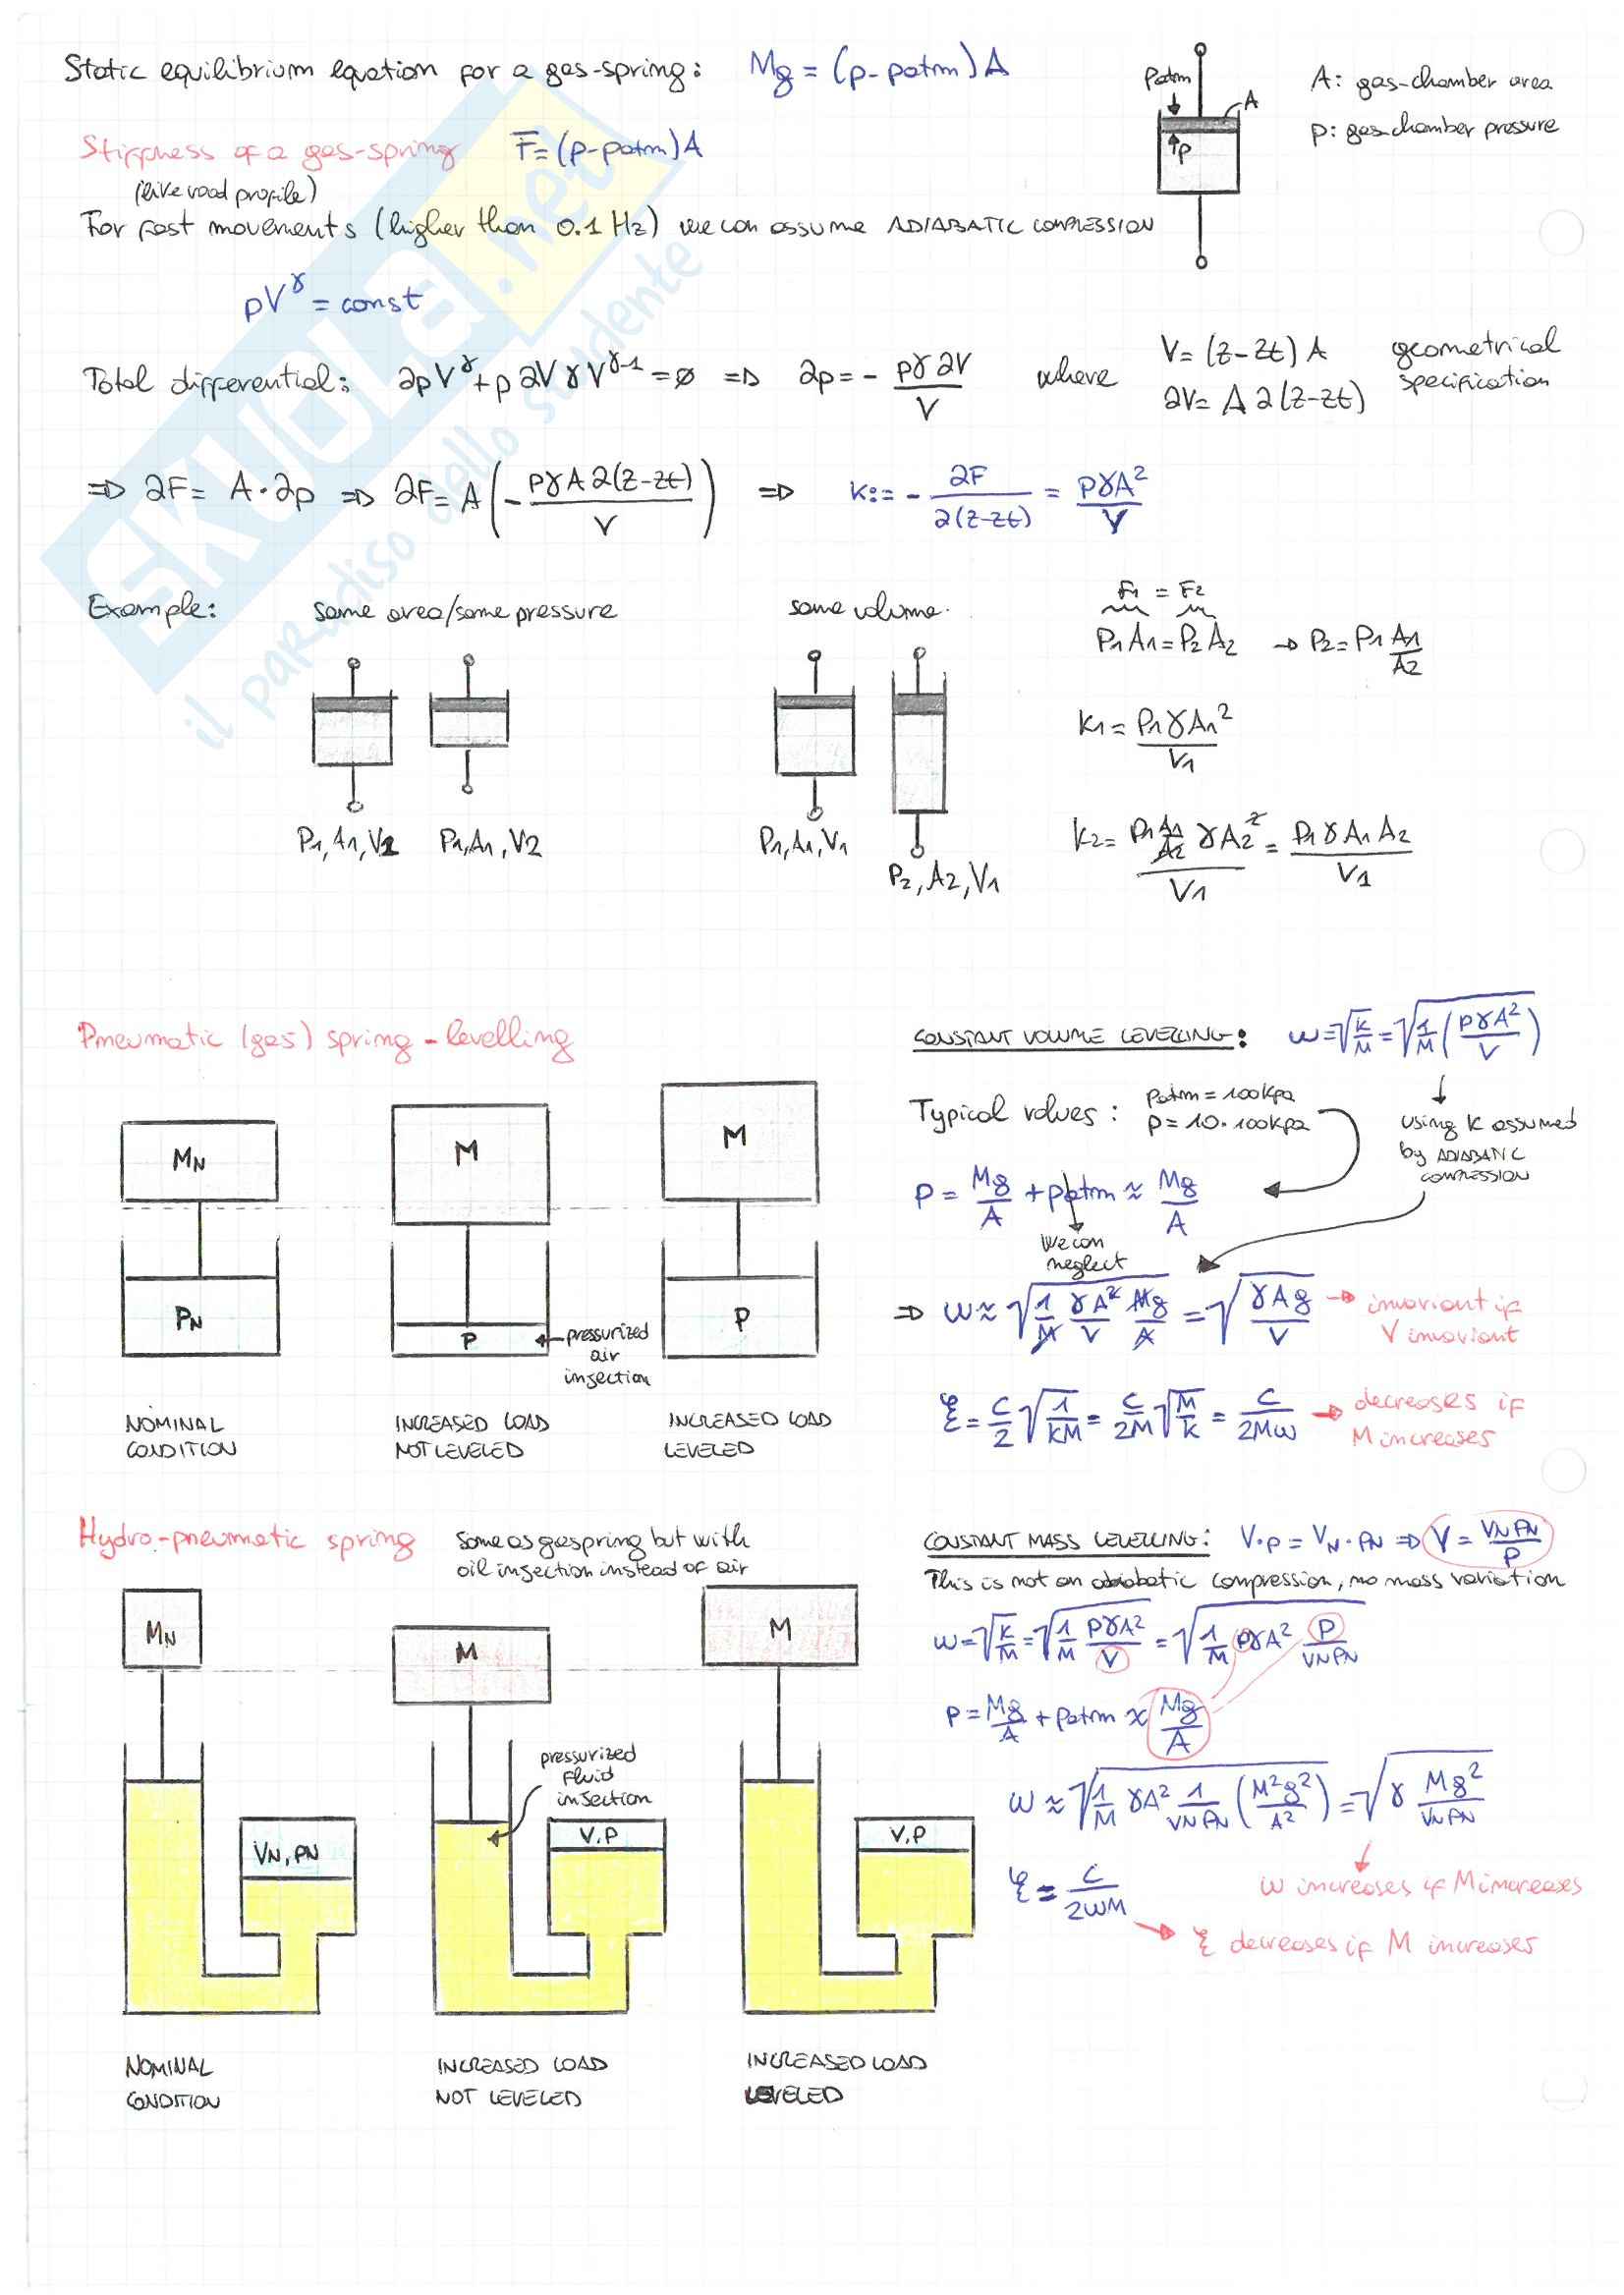 Static equilibrium equation for a gas-spring: Mg = (p - patm) A
patm
A
p
A: gas-chamber area
p: gas-chamber pressure
Stiffness of a gas-spring F = (p - patm) A
(like road profile)
For fast movements (higher than 0.1 Hz) we can assume ADIABATIC COMPRESSION
pV^γ = const
Total differential: ∂pV^γ + p ∂V γ V^γ-1 = ø => ∂p = - pγ∂V / V where V = (z - zt) A geometrical specification
∂V = A ∂(z - zt)
=> ∂F = A · ∂p => ∂F = A (- pγA∂(z-zt) / V) => k := - ∂F / ∂(z-zt) = pγA² / V
Example: same area/same pressure same volume.
F1 = F2
P1 A1 = P2 A2 → P2 = P1 A1/A2
K1 = P1γA1² / V1
K2 = P1 A1/A2 γA2² / V1 = P1γA1A2 / V1
P1, A1, V1 P1, A1, V2
P1, A1, V1
P2, A2, V1
Pneumatic (gas) spring - levelling
MN M M
PN P P
pressurized air injection
NOMINAL CONDITION
INCREASED LOAD NOT LEVELED
INCREASED LOAD LEVELED
CONSTANT VOLUME LEVELLING: ω = √(k/M) = √(1/M (pγA²/V))
Typical values: patm = 100kpa
p = 10·100kpa
using K assumed by ADIABATIC COMPRESSION
p = Mg/A + patm ≈ Mg/A
We can neglect
=> ω ≈ √(1/M γA²/V Mg/A) = √(γAg/V) → invariant if V invariant
ξ = c/2 √(1/kM) = c/2M √(M/k) = c/2Mω → decreases if M increases
Hydro-pneumatic spring Same as gaspring but with
oil injection instead of air
MN M M
VN, PN
pressurized fluid injection
V,P
V,P
NOMINAL CONDITION
INCREASED LOAD NOT LEVELED
INCREASED LOAD LEVELED
CONSTANT MASS LEVELLING: V·p = VN·PN => V = VN PN / p
This is not an adiabatic compression, no mass variation
ω = √(k/M) = √(1/M pγA²/V) = √(1/M pγA² p/VNPN)
p = Mg/A + patm ≈ Mg/A
ω ≈ √(1/M γA² 1/VNPN (M²g²/A²)) = √(γ Mg²/VNPN)
ω increases if M increases
ξ = c/2ωM
→ ξ decreases if M increases
SKUOLA.net
il paradiso dello studente